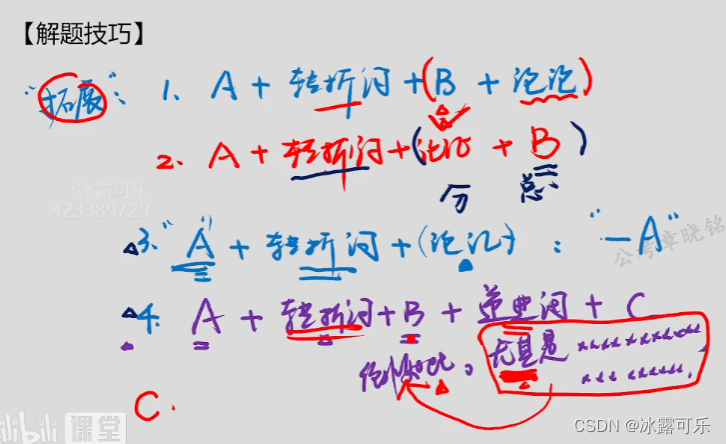 【解题技巧】
"拓展": 1. A + 转折词 + (B + 论证)
2. A + 转折词 + (论证 + B)
分 总
冰露可乐
423389729
3. "A" + 转折词 + (论证) : "-A"
公考章晓铭
4. A + 转折词 + B + 递进词 + C
尤其是
C.
bilibili 课堂
CSDN @冰露可乐